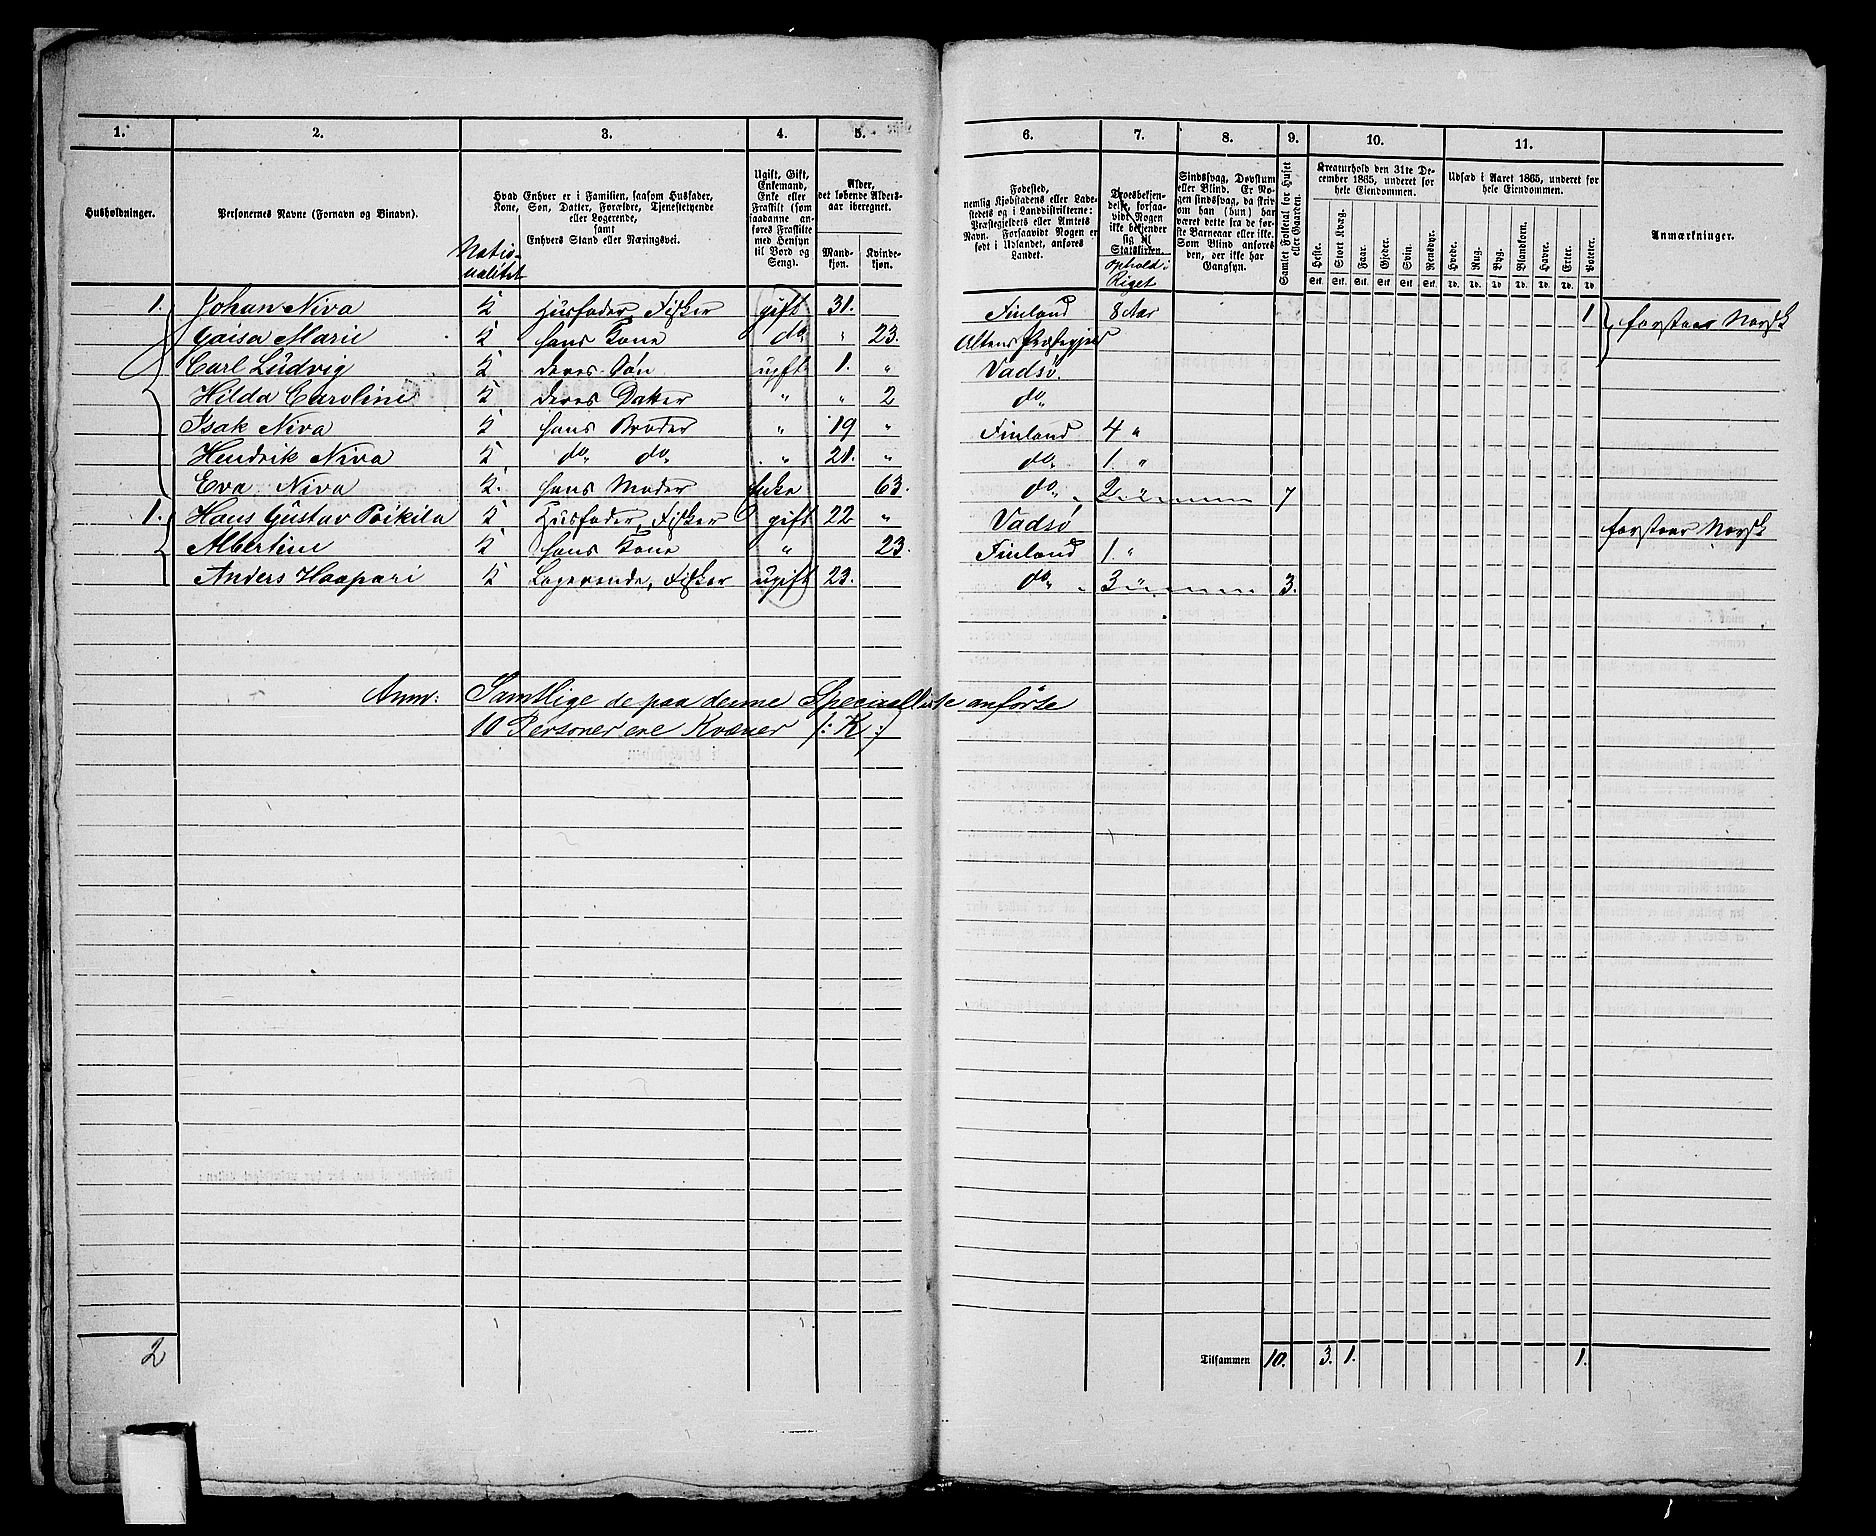 1. 2. 3. 4. 5. 6. 7. 8. 9. 10. 11.
Husholdninger.
Personernes Navne (Fornavn og Binavn).
Hvad Enhver er i Familien, saasom Husfader,
Kone, Søn, Datter, Forældre, Tjenestetyende
eller Logerende,
samt
Enhvers Stand eller Næringsvei.
Natio-
nalitet
Ugift, Gift,
Enkemand,
Enke eller
Fraskilt (som
saadanne an-
føres Fraskilte
med Hensyn
til Bord og
Seng).
Alder,
det løbende Alders-
aar iberegnet.
Mand-
kjøn.
Kvinde-
kjøn.
Fødested,
nemlig Kjøbstadens eller Lade-
stedets og i Landdistrikterne:
Præstegjeldets eller Antets
Navn. Forsaavidt Nogen er
født i Udlandet, anføres
Landet.
Troesbekjen-
delse, forsaa-
vidt Nogen
ikke bekjender
sig til
Statskirken.
Ophold i
Riget
Sindssvag, Døvstum
eller Blind. Er No-
gen sindssvag, da skriv
om han (hun) har
været dette fra de før-
ste Barneaar eller ikke.
Som Blind anføres
den, der ikke har
Gangsyn.
Samlet Folketal for Huset
eller Gaarden.
Kreaturhold den 31te De-
cember 1865, underet for
hele Eiendommen.
Heste. Stort Kvæg. Faar. Gjeder. Svin. Rensdyr.
Stk. Stk. Stk. Stk. Stk. Stk.
Udsæd i Aaret 1865, underet for
hele Eiendommen.
Hvede. Rug. Byg. Blandkorn. Havre. Erter. Poteter.
Td. Td. Td. Td. Td. Td. Td.
Anmærkninger.
1. Johan Niva K Husfader, Fisker gift 31. Finland 8 Aar 1 forstaar Norsk
Gaisa Marie K hans Kone do " 23. Altens Præstegjeld
Carl Ludvig K deres Søn ugift 1. " Vadsø.
Hilda Caroline K deres Datter " " 2 do"
Isak Niva K hans Broder " 19 " Finland 4 "
Hendrik Niva K do" do" " 21. " do" 1. "
Eva Niva K. hans Moder Enke 63. do" 2 " 7
1. Hans Gustav Poikila K Husfader, Fisker gift 22 " Vadsø forstaar Norsk
Albertine K hans Kone " 23. Finland 1 "
Anders Haapari K Logerende, Fisker ugift 23. do" 3 " 3.
Anm: Samtlige de paa denne Specialliste anførte
10 Personer ere Kvæner /: K :/
2
Tilsammen 10. 3. 1. 1.